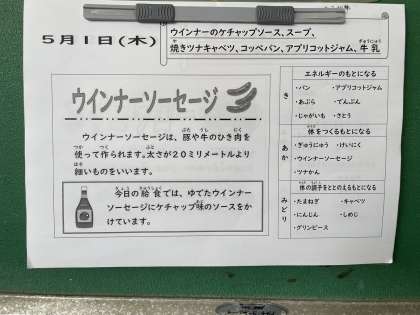 5月1日(木)
ウインナーのケチャップソース、スープ、
焼きツナキャベツ、コッペパン、アプリコットジャム、牛乳
ウインナーソーセージ
ウインナーソーセージは、豚や牛のひき肉を
使って作られます。太さが20ミリメートルより
細いものをいいます。
今日の給食では、ゆでたウインナー
ソーセージにケチャップ味のソースをか
けています。
き
エネルギーのもとになる
・パン ・アプリコットジャム
・あぶら ・でんぷん
・じゃがいも ・さとう
あか
体をつくるもとになる
・ぎゅうにゅう ・けいにく
・ウインナーソーセージ
・ツナかん
みどり
体の調子をととのえるもとになる
・たまねぎ ・キャベツ
・にんじん ・しめじ
・グリンピース